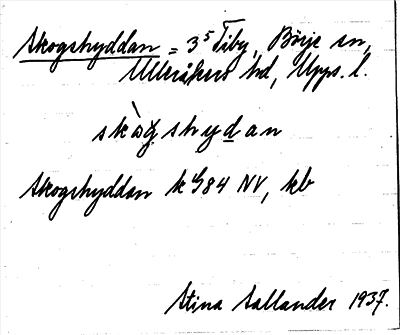 Skogshyddan = 3⁵ Tiby, Börje sn,
Ulleråkers hd, Upps. l.
skὰgshydan
Skogshyddan k G84 NV, kb
Stina Sallander 1937.